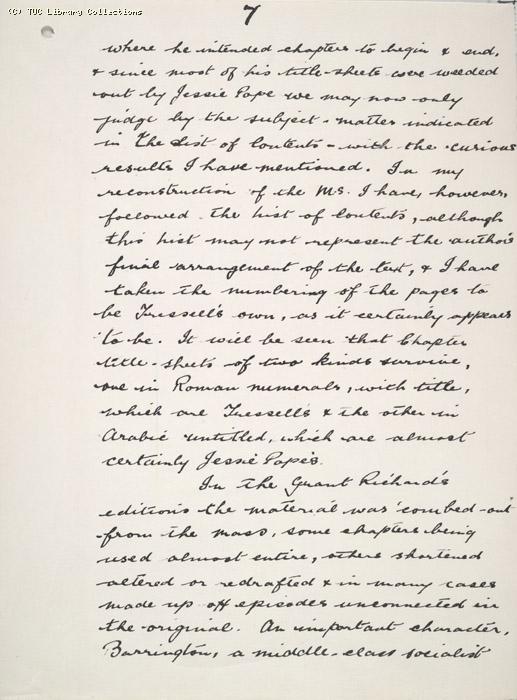 (C) TUC Library Collections
7
where he intended chapters to begin & end,
& since most of his title-sheets were weeded
out by Jessie Pope we may now only
judge by the subject-matter indicated
in the List of Contents - with the curious
results I have mentioned. In my
reconstruction of the MS. I have, however,
followed the List of Contents, although
this list may not represent the author's
final arrangement of the text, & I have
taken the numbering of the pages to
be Tressell's own, as it certainly appears
to be. It will be seen that Chapter
title-sheets of two kinds survive,
one in Roman numerals, with title,
which are Tressell's & the other in
Arabic untitled, which are almost
certainly Jessie Pope's.
In the Grant Richard's
editions the material was 'combed-out'
from the mass, some chapters being
used almost entire, others shortened
altered or redrafted & in many cases
made up of episodes unconnected in
the original. An important character,
Barrington, a middle-class socialist